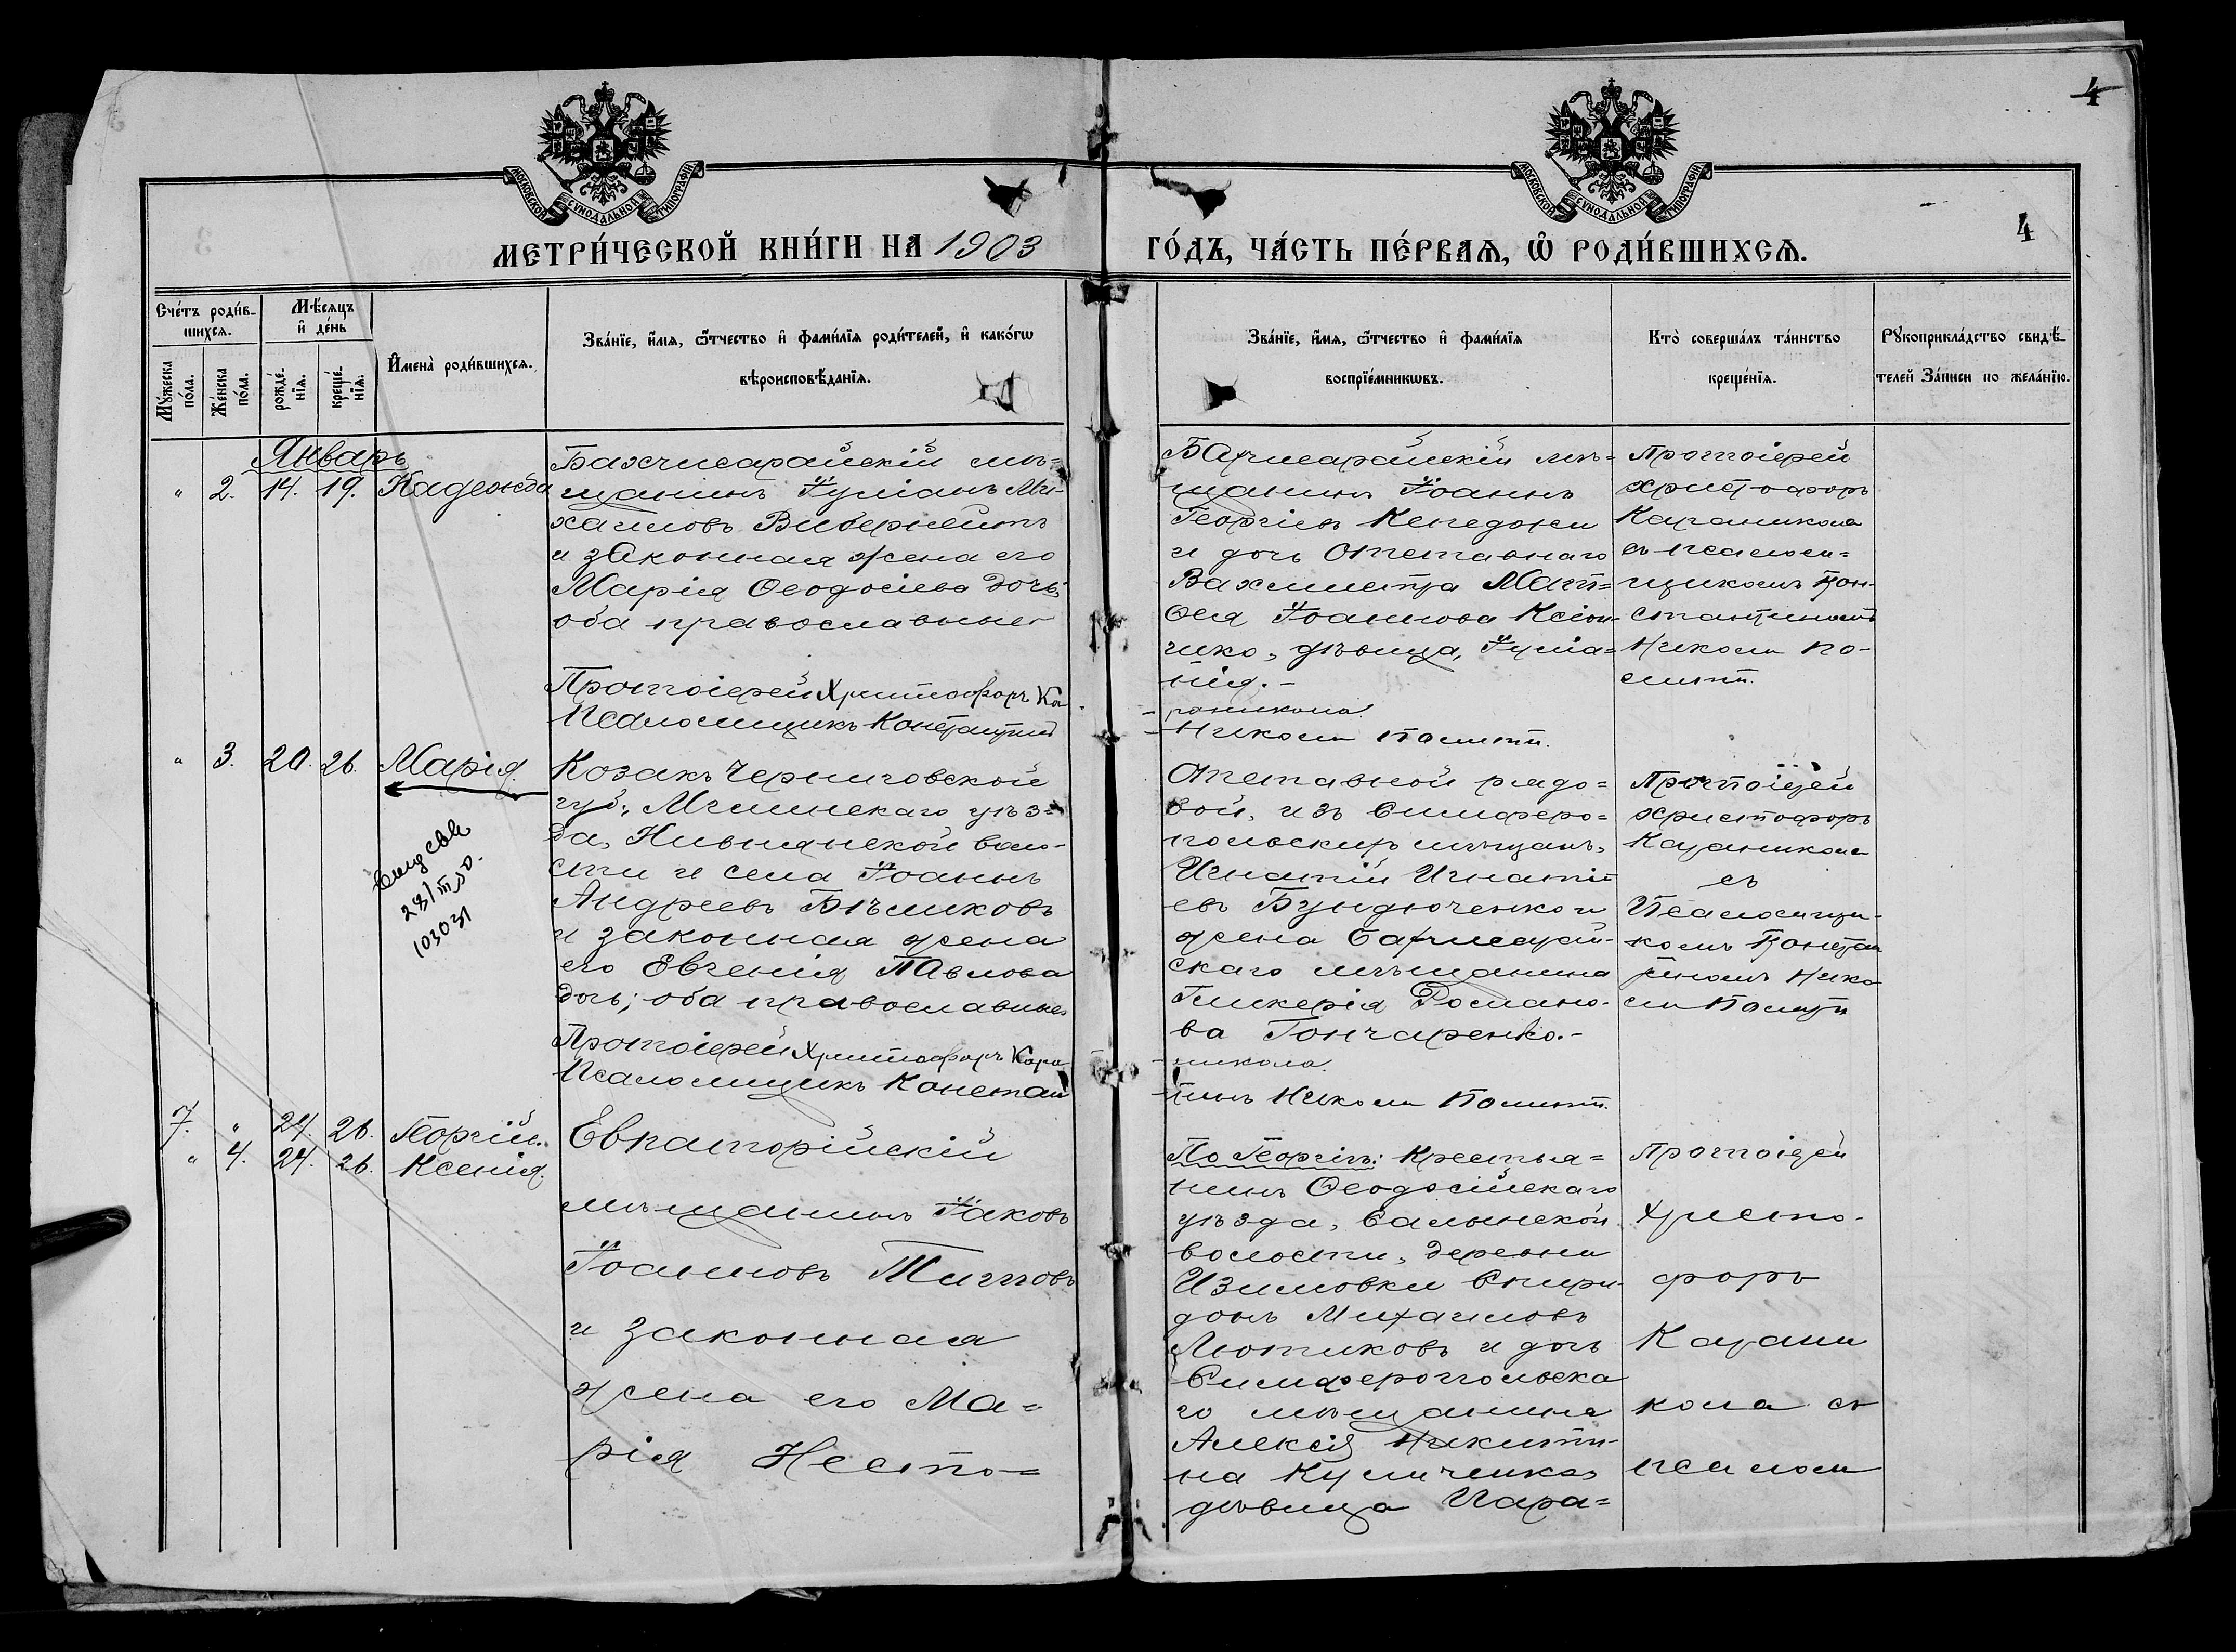 4
4
МОСКОВСКОЙ СѴНОДАЛЬНОЙ ТИПОГРАФІИ
МОСКОВСКОЙ СѴНОДАЛЬНОЙ ТИПОГРАФІИ
МЕТРИ́ЧЕСКОЙ КНИ́ГИ НА 1903
ГО́ДЪ, ЧА́СТЬ ПЕ́РВАѦ, Ѡ҆ РОДИ́ВШИХСѦ.
Сче́тъ роди́в-
шихсѧ.
Мꙋ́жеска по́ла.
Же́нска по́ла.
Мѣ́сяцъ
и҆ де́нь
рожде́-нїѧ.
креще́-нїѧ.
И҆мена̀ роди́вшихсѧ.
Зва́нїе, и҆́мѧ, ѻ҆́тчество и҆ фами́лїѧ роди́телей, и҆ како́гѡ
вѣроисповѣ́данїѧ.
Зва́нїе, и҆́мѧ, ѻ҆́тчество и҆ фами́лїѧ
воспрїе́мникѡвъ.
Кто̀ соверша́лъ та́инство
креще́нїѧ.
Рꙋкоприкла́дство свидѣ́-
телей За́писи по жела́нїю.
Январь
" 2. 14. 19. Надежда
Бахчисарайскій мѣ=
щанинъ Іуліанъ Ми-
хаиловъ
и законная жена его
Марія Ѳеодосіева дочь;
оба православные
Протоіерей Христофоръ Ка-
Псаломщикъ Константинъ
Бахчисарайскій мѣ-
щанинъ Іоаннъ
Георгіевъ
и дочь отставнаго
Вахмистра Мат=
ѳея Іоаннова
дѣвица, Іуліа=
нія.-
-раникола.
- Николи Помитт.
Протоіерей
Христофоръ
Караникола
съ псалом=
щикомъ Кон-
стантиномъ
Николи По-
митт.
" 3. 20. 26. Марія.
28/III 50.
103031
Козакъ Черниговской
губ., Мглинскаго уѣз=
да, Нивнянской воло-
сти и села Іоаннъ
Андреевъ Бѣликовъ
и законная жена
его Евгенія Павлова
дочь; оба православные
Протоіерей Христофоръ Кара-
Псаломщикъ Констан
Отставной рядо=
вой, изъ Симферо=
польскихъ мѣщанъ,
Игнатій Игнатіе
евъ Бундюченко и
жена Бахчисарай-
скаго мѣщанина
Гликерія Романо-
ва Гончаренко.-
-никола.
-тинъ Николи Помитт.
Протоіерей
Христофоръ
Караникола
съ
Псаломщи-
комъ Констан
тиномъ Нико
ли Помитт
7. " 24. 26. Георгій.
" 4. 24. 26. Ксенія.
Евпаторійскій
мѣщанинъ Іаковъ
Іоанновъ Титовъ
и законная
жена его Ма=
рія Несто=
По Георгіѣ: Крестья=
нинъ Ѳеодосійскаго
уѣзда, Салынской
волости, деревни
Изюмовки Спири-
донъ Михаиловъ
Лютиковъ и дочь
Симферопольска
го мѣщанина
Алексія Никити-
на
дѣвица Пара=
Протоіерей
Христо-
форъ
Карани
кола съ
псалом